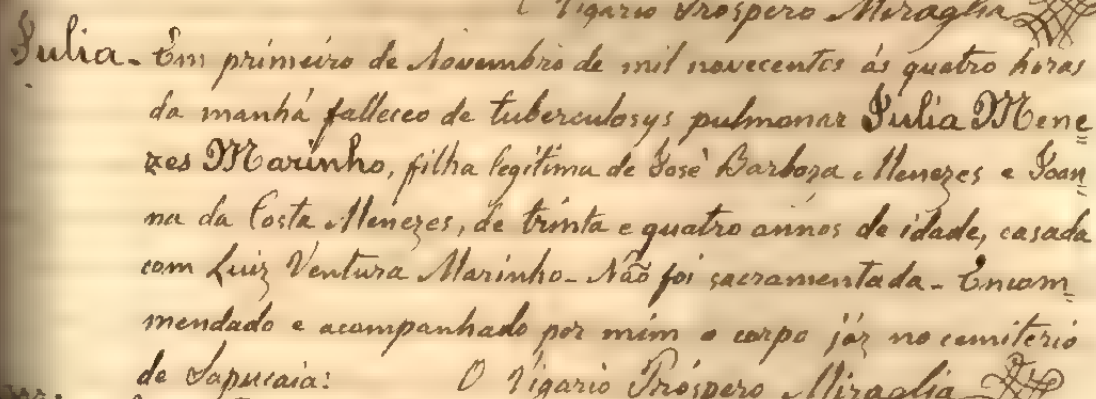 O Vigario Prospero Miraglia
Julia - Em primeiro de Novembro de mil novecentos ás quatro horas
da manhá falleceo de tuberculosys pulmonar Julia Mene=
zes Marinho, filha legitima de José Barboza Menezes e Joan=
na da Costa Menezes, de trinta e quatro annos de idade, casada
com Luiz Ventura Marinho - Não foi sacramentada - Encom=
mendado e acompanhado por mim o corpo jáz no cemiterio
de Sapucaia:     O Vigario Próspero Miraglia